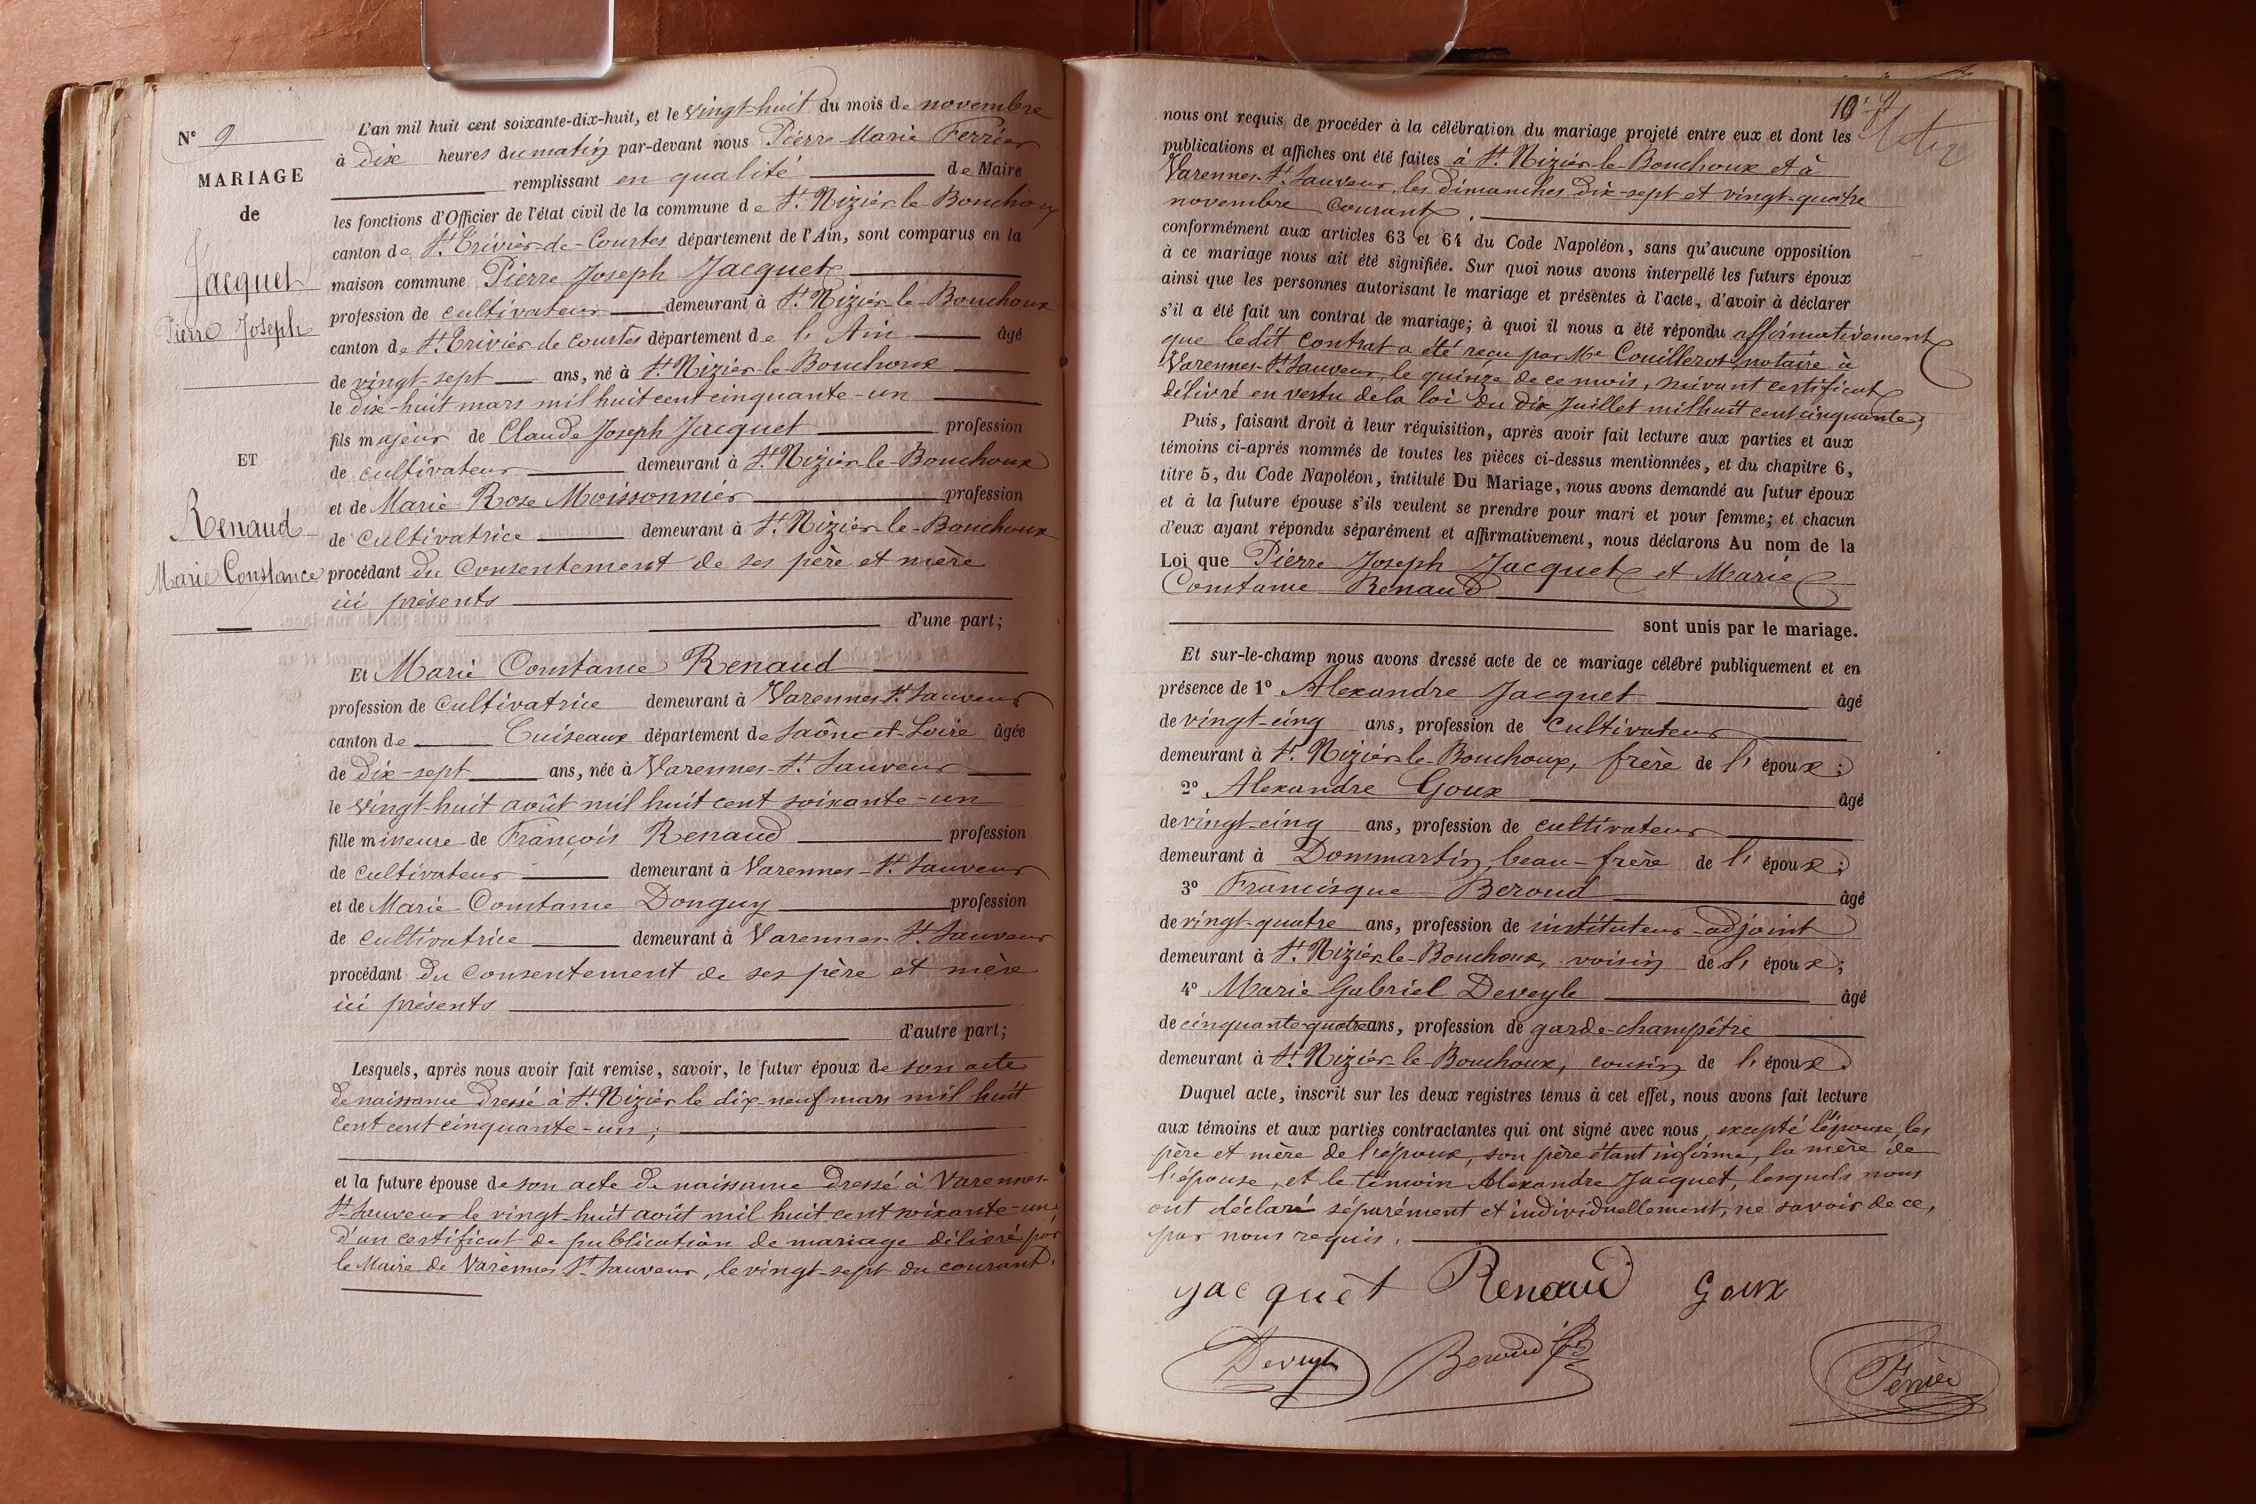 N° 9
MARIAGE
de
Jacquet
Pierre Joseph
ET
Renaud
Marie Constance
L'an mil huit cent soixante-dix-huit, et le vingt-huit du mois de novembre
à dix heures du matin par-devant nous Pierre Marie Ferrier
remplissant en qualité de Maire
les fonctions d'Officier de l'état civil de la commune de St. Nizier-le-Bouchoux
canton de St. Trivier-de-Courtes département de l'Ain, sont comparus en la
maison commune Pierre Joseph Jacquet
profession de cultivateur demeurant à St. Nizier-le-Bouchoux
canton de St. Trivier de Courtes département de l'Ain âgé
de vingt-sept ans, né à St. Nizier-le-Bouchoux
le dix-huit mars mil huit cent cinquante-un
fils majeur de Claude Joseph Jacquet profession
de cultivateur demeurant à St. Nizier-le-Bouchoux
et de Marie Rose Moissonnier profession
de cultivatrice demeurant à St. Nizier-le-Bouchoux
procédant du consentement de ses père et mère
ici présents
d'une part;
Et Marie Constance Renaud
profession de cultivatrice demeurant à Varennes-St. Sauveur
canton de Cuiseaux département de Saône-et-Loire âgée
de dix-sept ans, née à Varennes-St. Sauveur
le vingt-huit août mil huit cent soixante-un
fille mineure de François Renaud profession
de cultivateur demeurant à Varennes-St. Sauveur
et de Marie Constance Donguy profession
de cultivatrice demeurant à Varennes St. Sauveur
procédant du consentement de ses père et mère
ici présents
d'autre part;
Lesquels, après nous avoir fait remise, savoir, le futur époux de son acte
de naissance dressé à St. Nizier le dix-neuf mars mil huit
cent cent cinquante-un;
et la future épouse de son acte de naissance dressé à Varennes-
St. Sauveur le vingt-huit août mil huit cent soixante-un;
d'un certificat de publication de mariage délivré par
le Maire de Varennes St. Sauveur, le vingt-sept du courant.
10
nous ont requis de procéder à la célébration du mariage projeté entre eux et dont les
publications et affiches ont été faites à St. Nizier-le-Bouchoux et à
Varennes-St. Sauveur, les dimanches dix-sept et vingt-quatre
novembre courant.
conformément aux articles 63 et 64 du Code Napoléon, sans qu'aucune opposition
à ce mariage nous ait été signifiée. Sur quoi nous avons interpellé les futurs époux
ainsi que les personnes autorisant le mariage et présentes à l'acte, d'avoir à déclarer
s'il a été fait un contrat de mariage; à quoi il nous a été répondu affirmativement
que ledit contrat a été reçu par Me Couillerot, notaire à
Varennes-St. Sauveur, le quinze de ce mois, suivant certificat
délivré en vertu de la loi du dix Juillet mil huit cent cinquante;
Puis, faisant droit à leur réquisition, après avoir fait lecture aux parties et aux
témoins ci-après nommés de toutes les pièces ci-dessus mentionnées, et du chapitre 6,
titre 5, du Code Napoléon, intitulé Du Mariage, nous avons demandé au futur époux
et à la future épouse s'ils veulent se prendre pour mari et pour femme; et chacun
d'eux ayant répondu séparément et affirmativement, nous déclarons Au nom de la
Loi que Pierre Joseph Jacquet et Marie
Constance Renaud
sont unis par le mariage.
Et sur-le-champ nous avons dressé acte de ce mariage célébré publiquement et en
présence de 1° Alexandre Jacquet âgé
de vingt-cinq ans, profession de cultivateur
demeurant à St. Nizier-le-Bouchoux, frère de l'époux;
2° Alexandre Goux âgé
de vingt-cinq ans, profession de cultivateur
demeurant à Dommartin, beau-frère de l'époux;
3° Francisque Beroud âgé
de vingt-quatre ans, profession de instituteur-adjoint
demeurant à St. Nizier-le-Bouchoux, voisin de l'époux;
4° Marie Gabriel Deveyle âgé
de cinquante-quatre ans, profession de garde-champêtre
demeurant à St. Nizier-le-Bouchoux, cousin de l'époux
Duquel acte, inscrit sur les deux registres tenus à cet effet, nous avons fait lecture
aux témoins et aux parties contractantes qui ont signé avec nous, excepté l'épouse, les
père et mère de l'époux, son père étant infirme, la mère de
l'épouse, et le témoin Alexandre Jacquet, lesquels nous
ont déclaré séparément et individuellement, ne savoir de ce,
par nous requis.
Jacquet Renaud Goux
Deveyle Beroud Ferrier